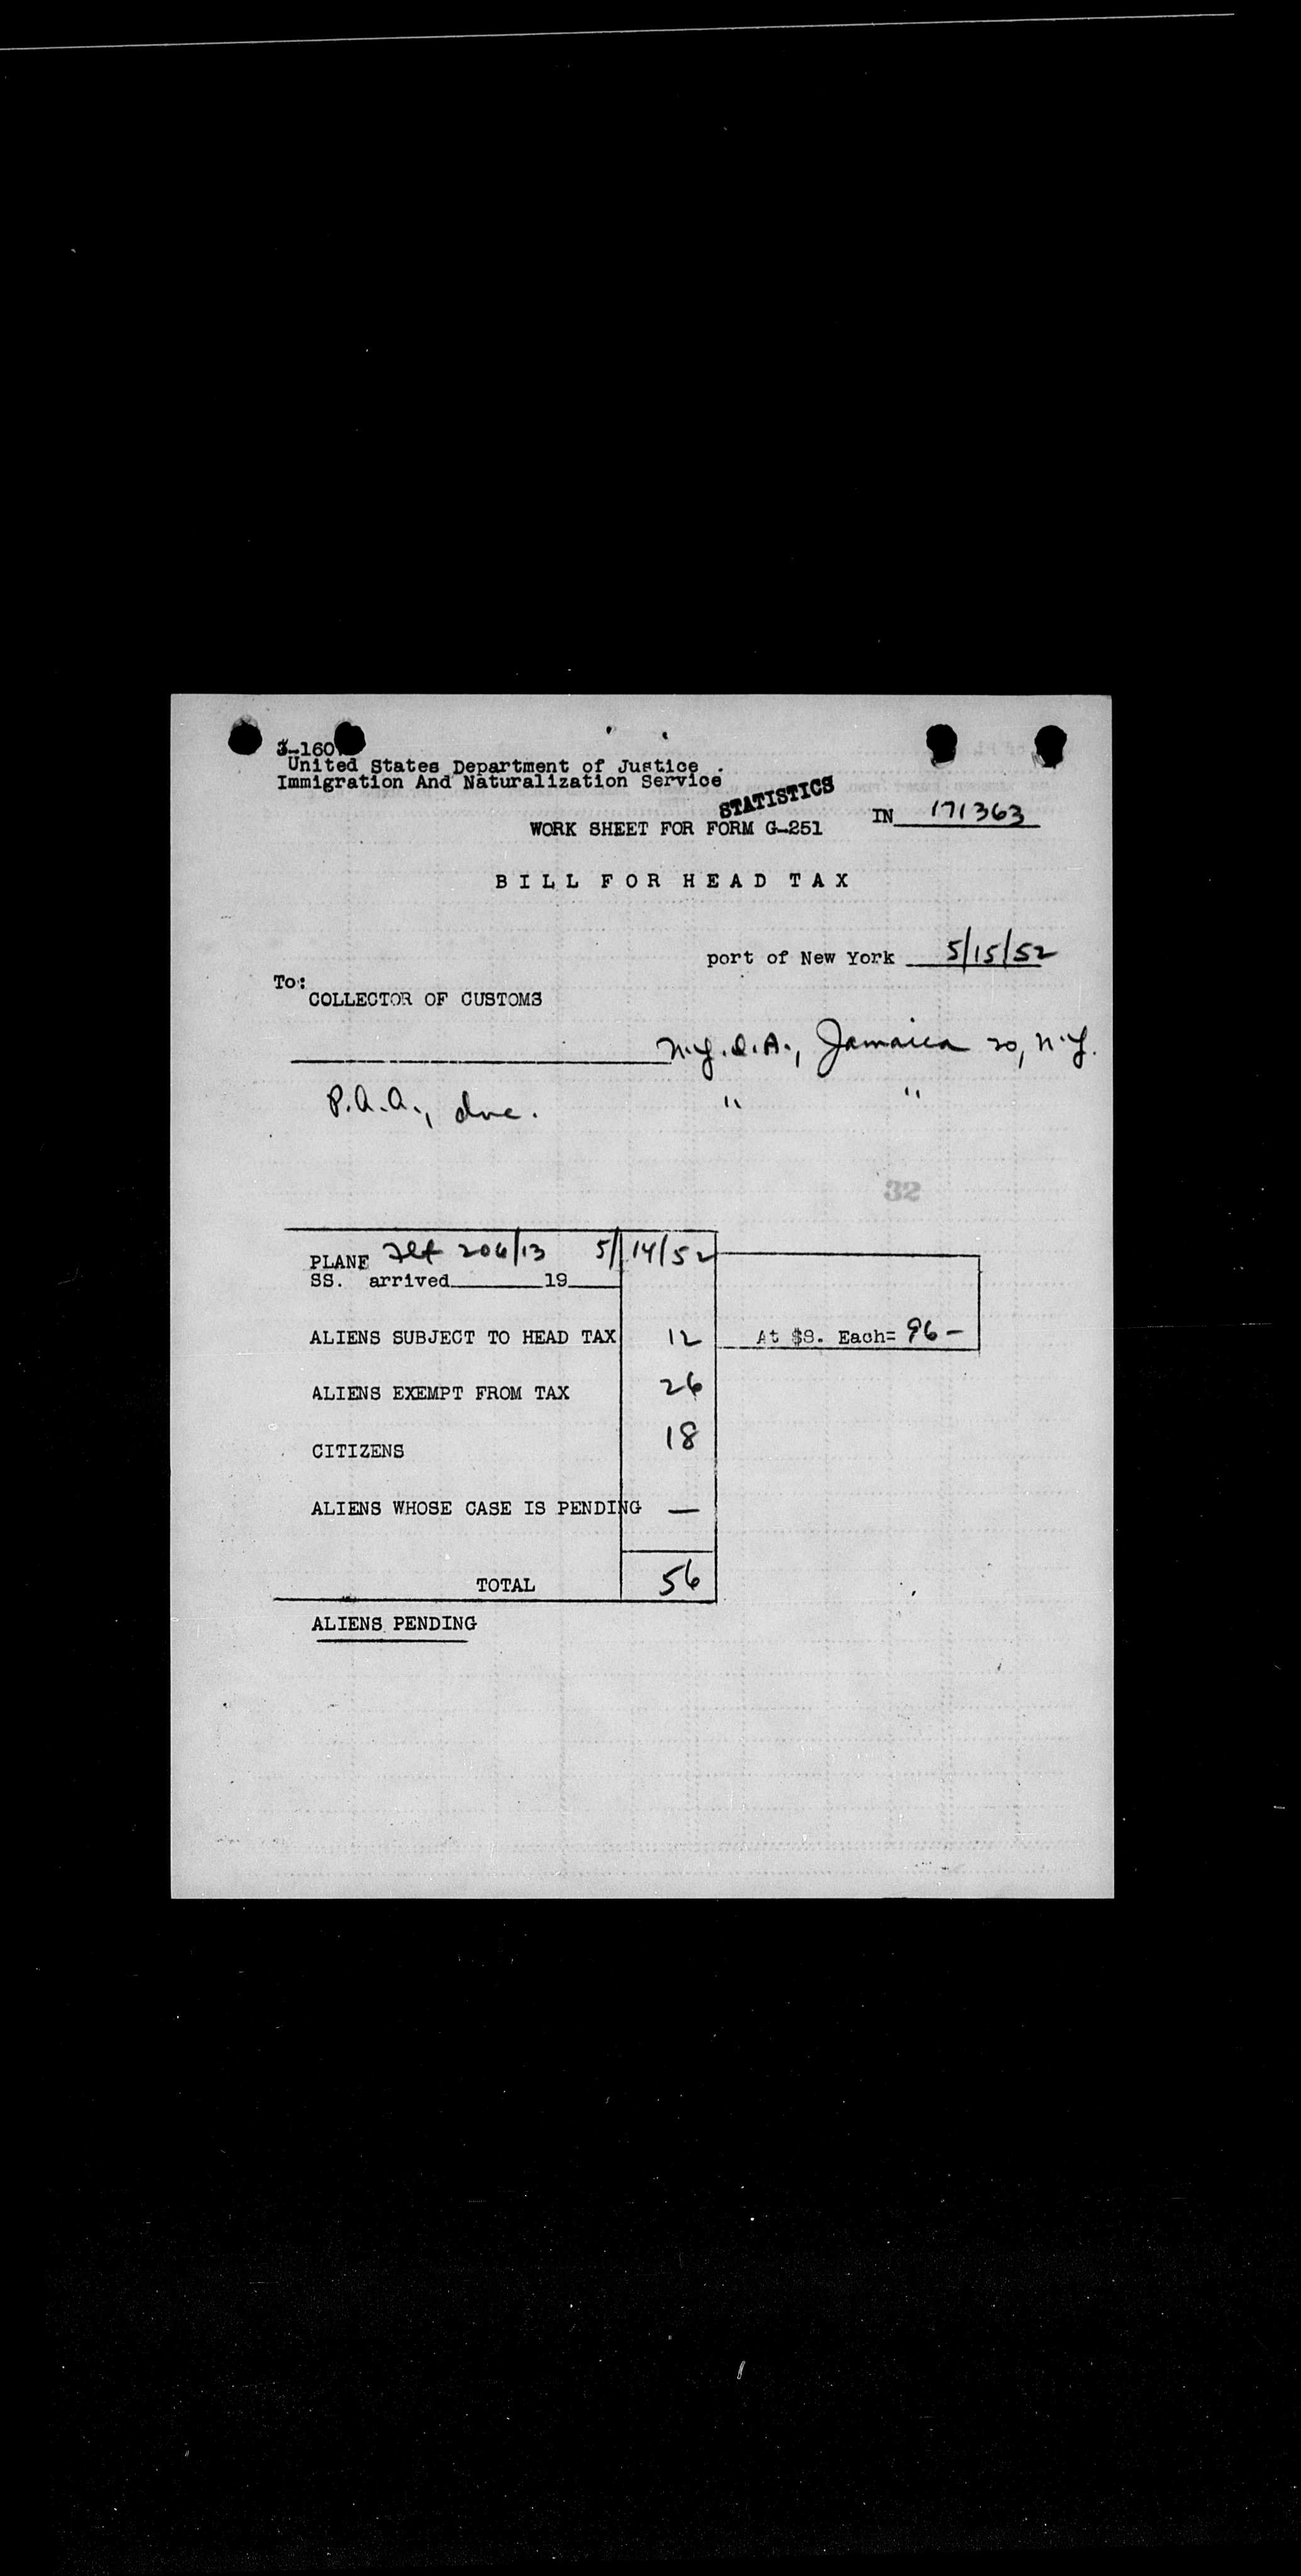 3-160
United States Department of Justice
Immigration And Naturalization Service
STATISTICS
IN 171363
WORK SHEET FOR FORM G-251
BILL FOR HEAD TAX
port of New York 5/15/52
To:
COLLECTOR OF CUSTOMS
N.Y.I.A., Jamaica 20, N.Y.
P.A.A., Inc. " "
32
PLANE Flt 206/13 5/14/52
SS. arrived 19
ALIENS SUBJECT TO HEAD TAX 12 At $8. Each= 96-
ALIENS EXEMPT FROM TAX 26
CITIZENS 18
ALIENS WHOSE CASE IS PENDING —
TOTAL 56
ALIENS PENDING